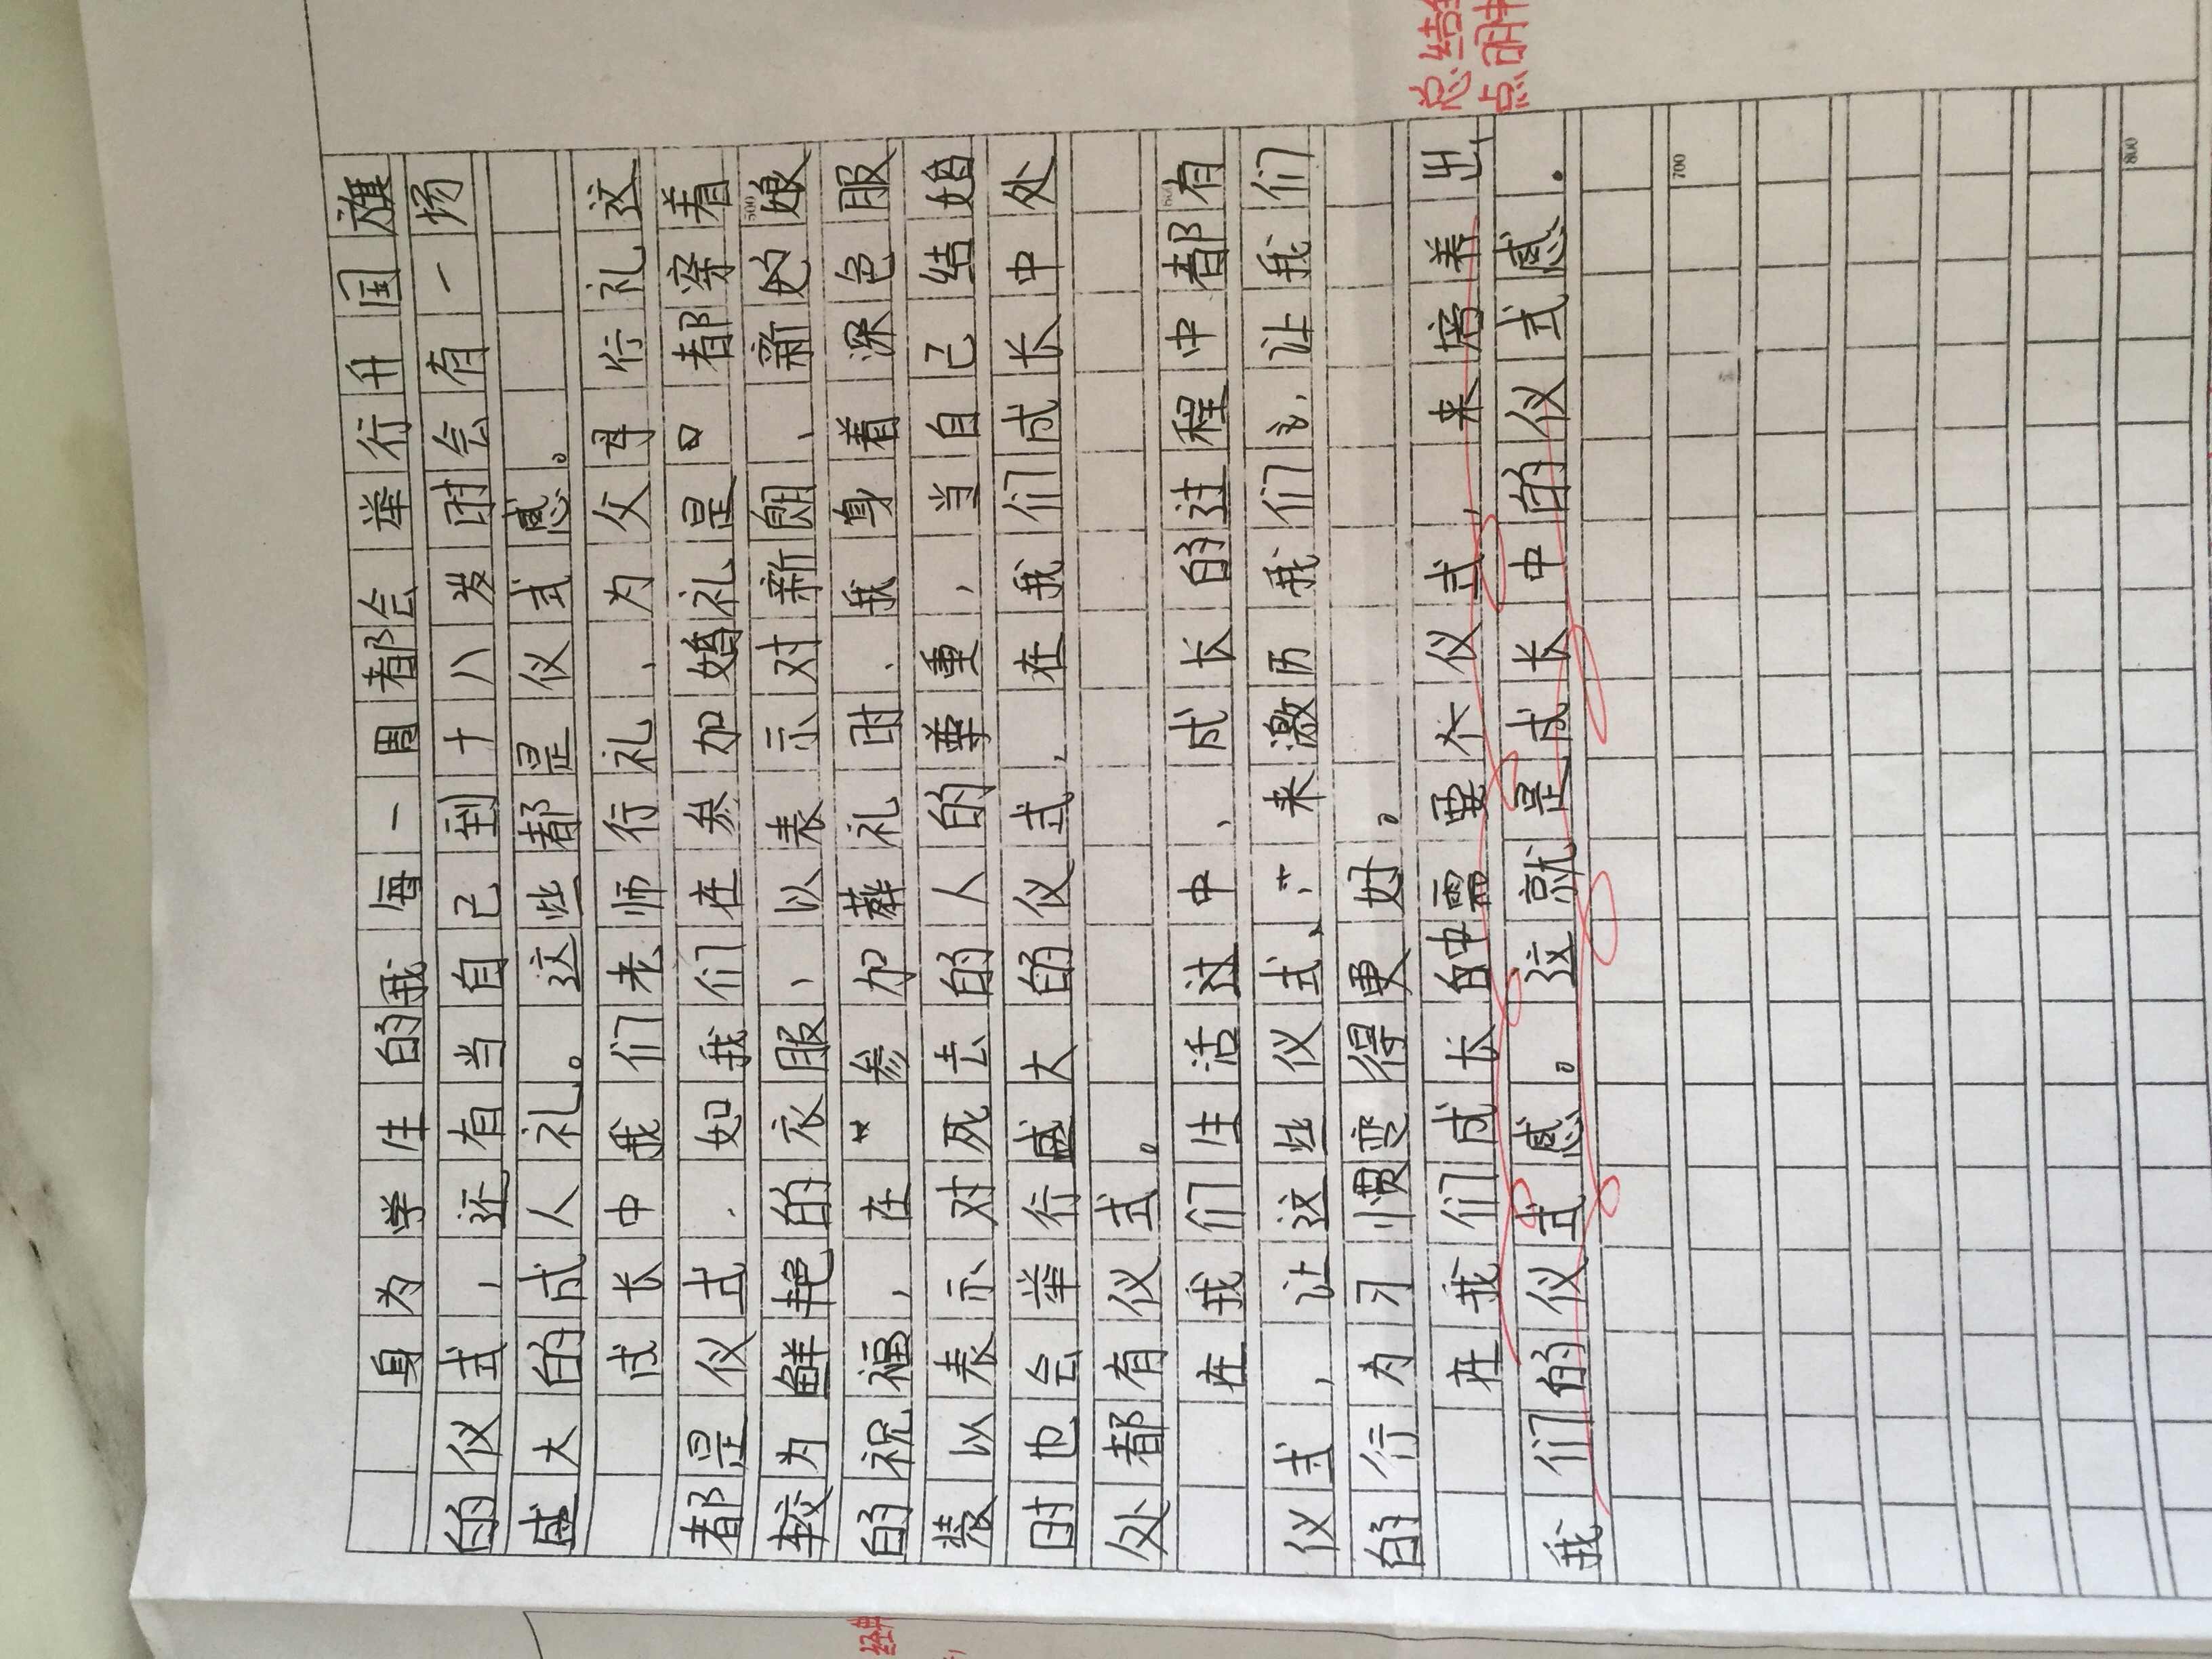 身为学生的我每一周都会举行升国旗
的仪式，还有当自己到十八岁时会有一场
盛大的成人礼。这些都是仪式感。
成长中我们老师行礼、为父母行礼这
都是仪式．如我们在参加婚礼是口都穿着
较为鲜艳的衣服，以表示对新朗、新的娘
的祝福，在参加葬礼时．我身着深色服
装以表示对死去的人的尊重，当自己结婚
时也会举行盛大的仪式，在我们成长中处
处都有仪式。
在我们生活过中，成长的过程中都有
仪式，让这些仪式、来激历我们，让我们
的行为习惯变得更好。
在我们成长的中需要个仪式，来培养出
我们的仪式感。这就是成长中的仪式感．
总结全
点明中
500
600
700
800
经典